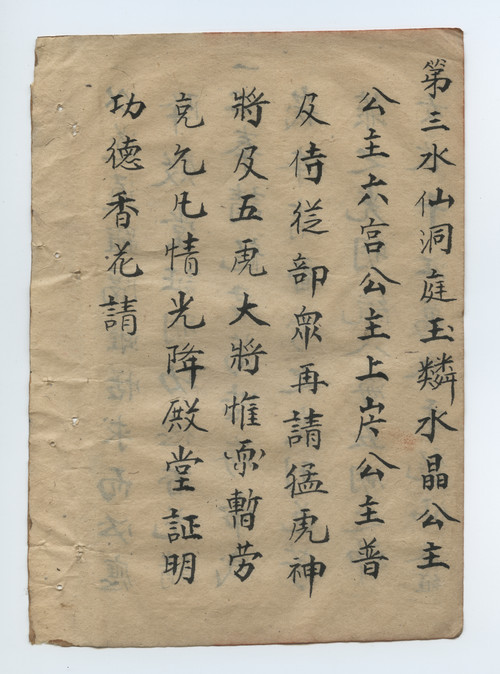 第三水仙洞庭玉鱗水晶公主
公主六宮公主上公主普
及侍從部眾再請猛虎神
將及五虎大將惟願暫劳
克允凡情光降殿堂証明
功德香花請